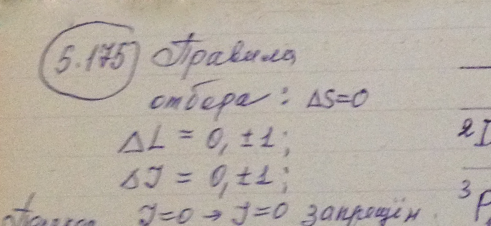 5.175 Правила
отбора: ΔS=0
ΔL = 0, ±1;
ΔJ = 0, ±1;
J=0 → J=0 запрещён.
2
3 P